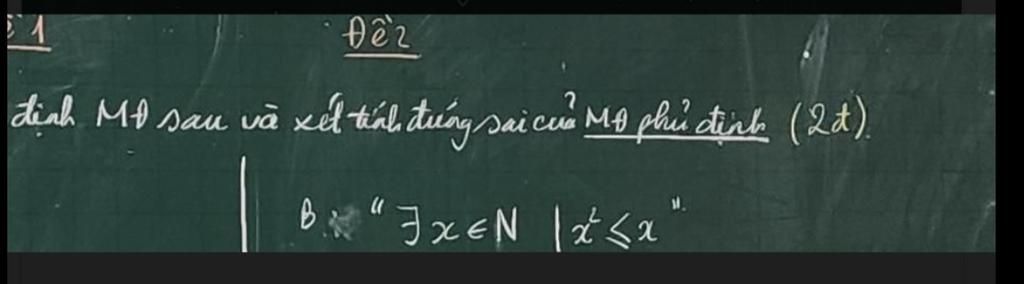 ề 1
Đề 2
định MĐ sau và xét tính đúng sai của MĐ phủ định (2đ).
B: "∃x ∈ N | x² ⩽ x".